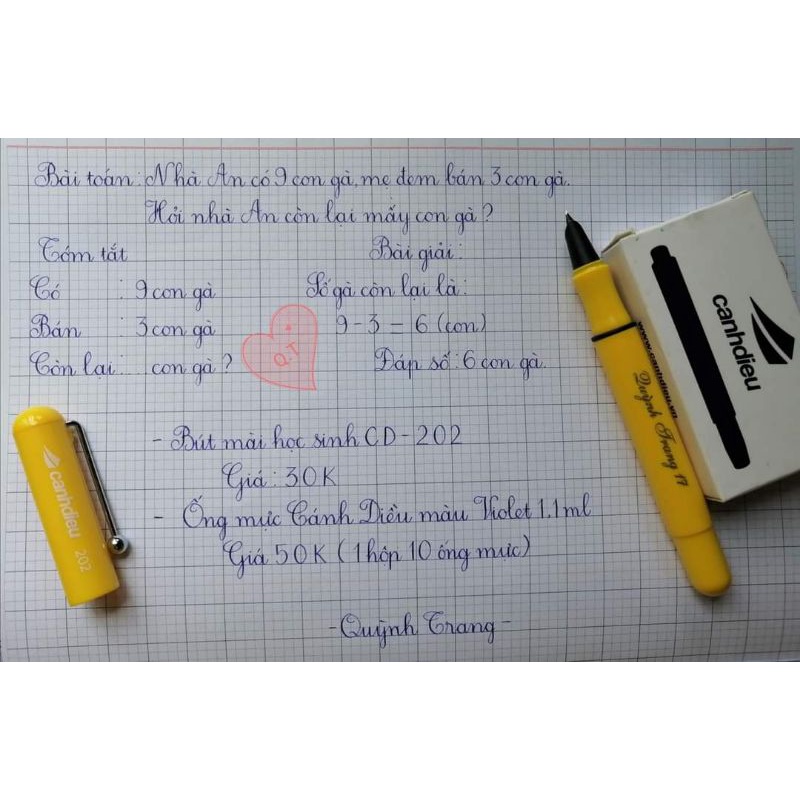 Bài toán: Nhà An có 9 con gà, mẹ đem bán 3 con gà.
Hỏi nhà An còn lại mấy con gà?
Tóm tắt
Có : 9 con gà
Bán : 3 con gà
Còn lại: ... con gà?
Bài giải:
Số gà còn lại là:
9 - 3 = 6 (con)
Đáp số: 6 con gà.
Q.T
- Bút mài học sinh CD - 202
Giá: 30K
- Ống mực Cánh Diều màu Violet 1.1ml
Giá 50K (1 hộp 10 ống mực)
- Quỳnh Trang -
canhdieu 202
www.canhdieu.vn
Quỳnh Trang 17
canhdieu